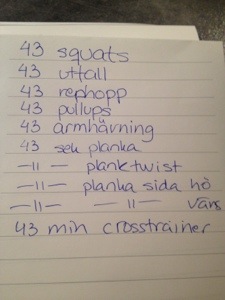 43 squats
43 utfall
43 rephopp
43 pullups
43 armhävning
43 sek planka
-11- planktwist
-11- planka sida hö
-11- -11-väns
43 min crosstrainer